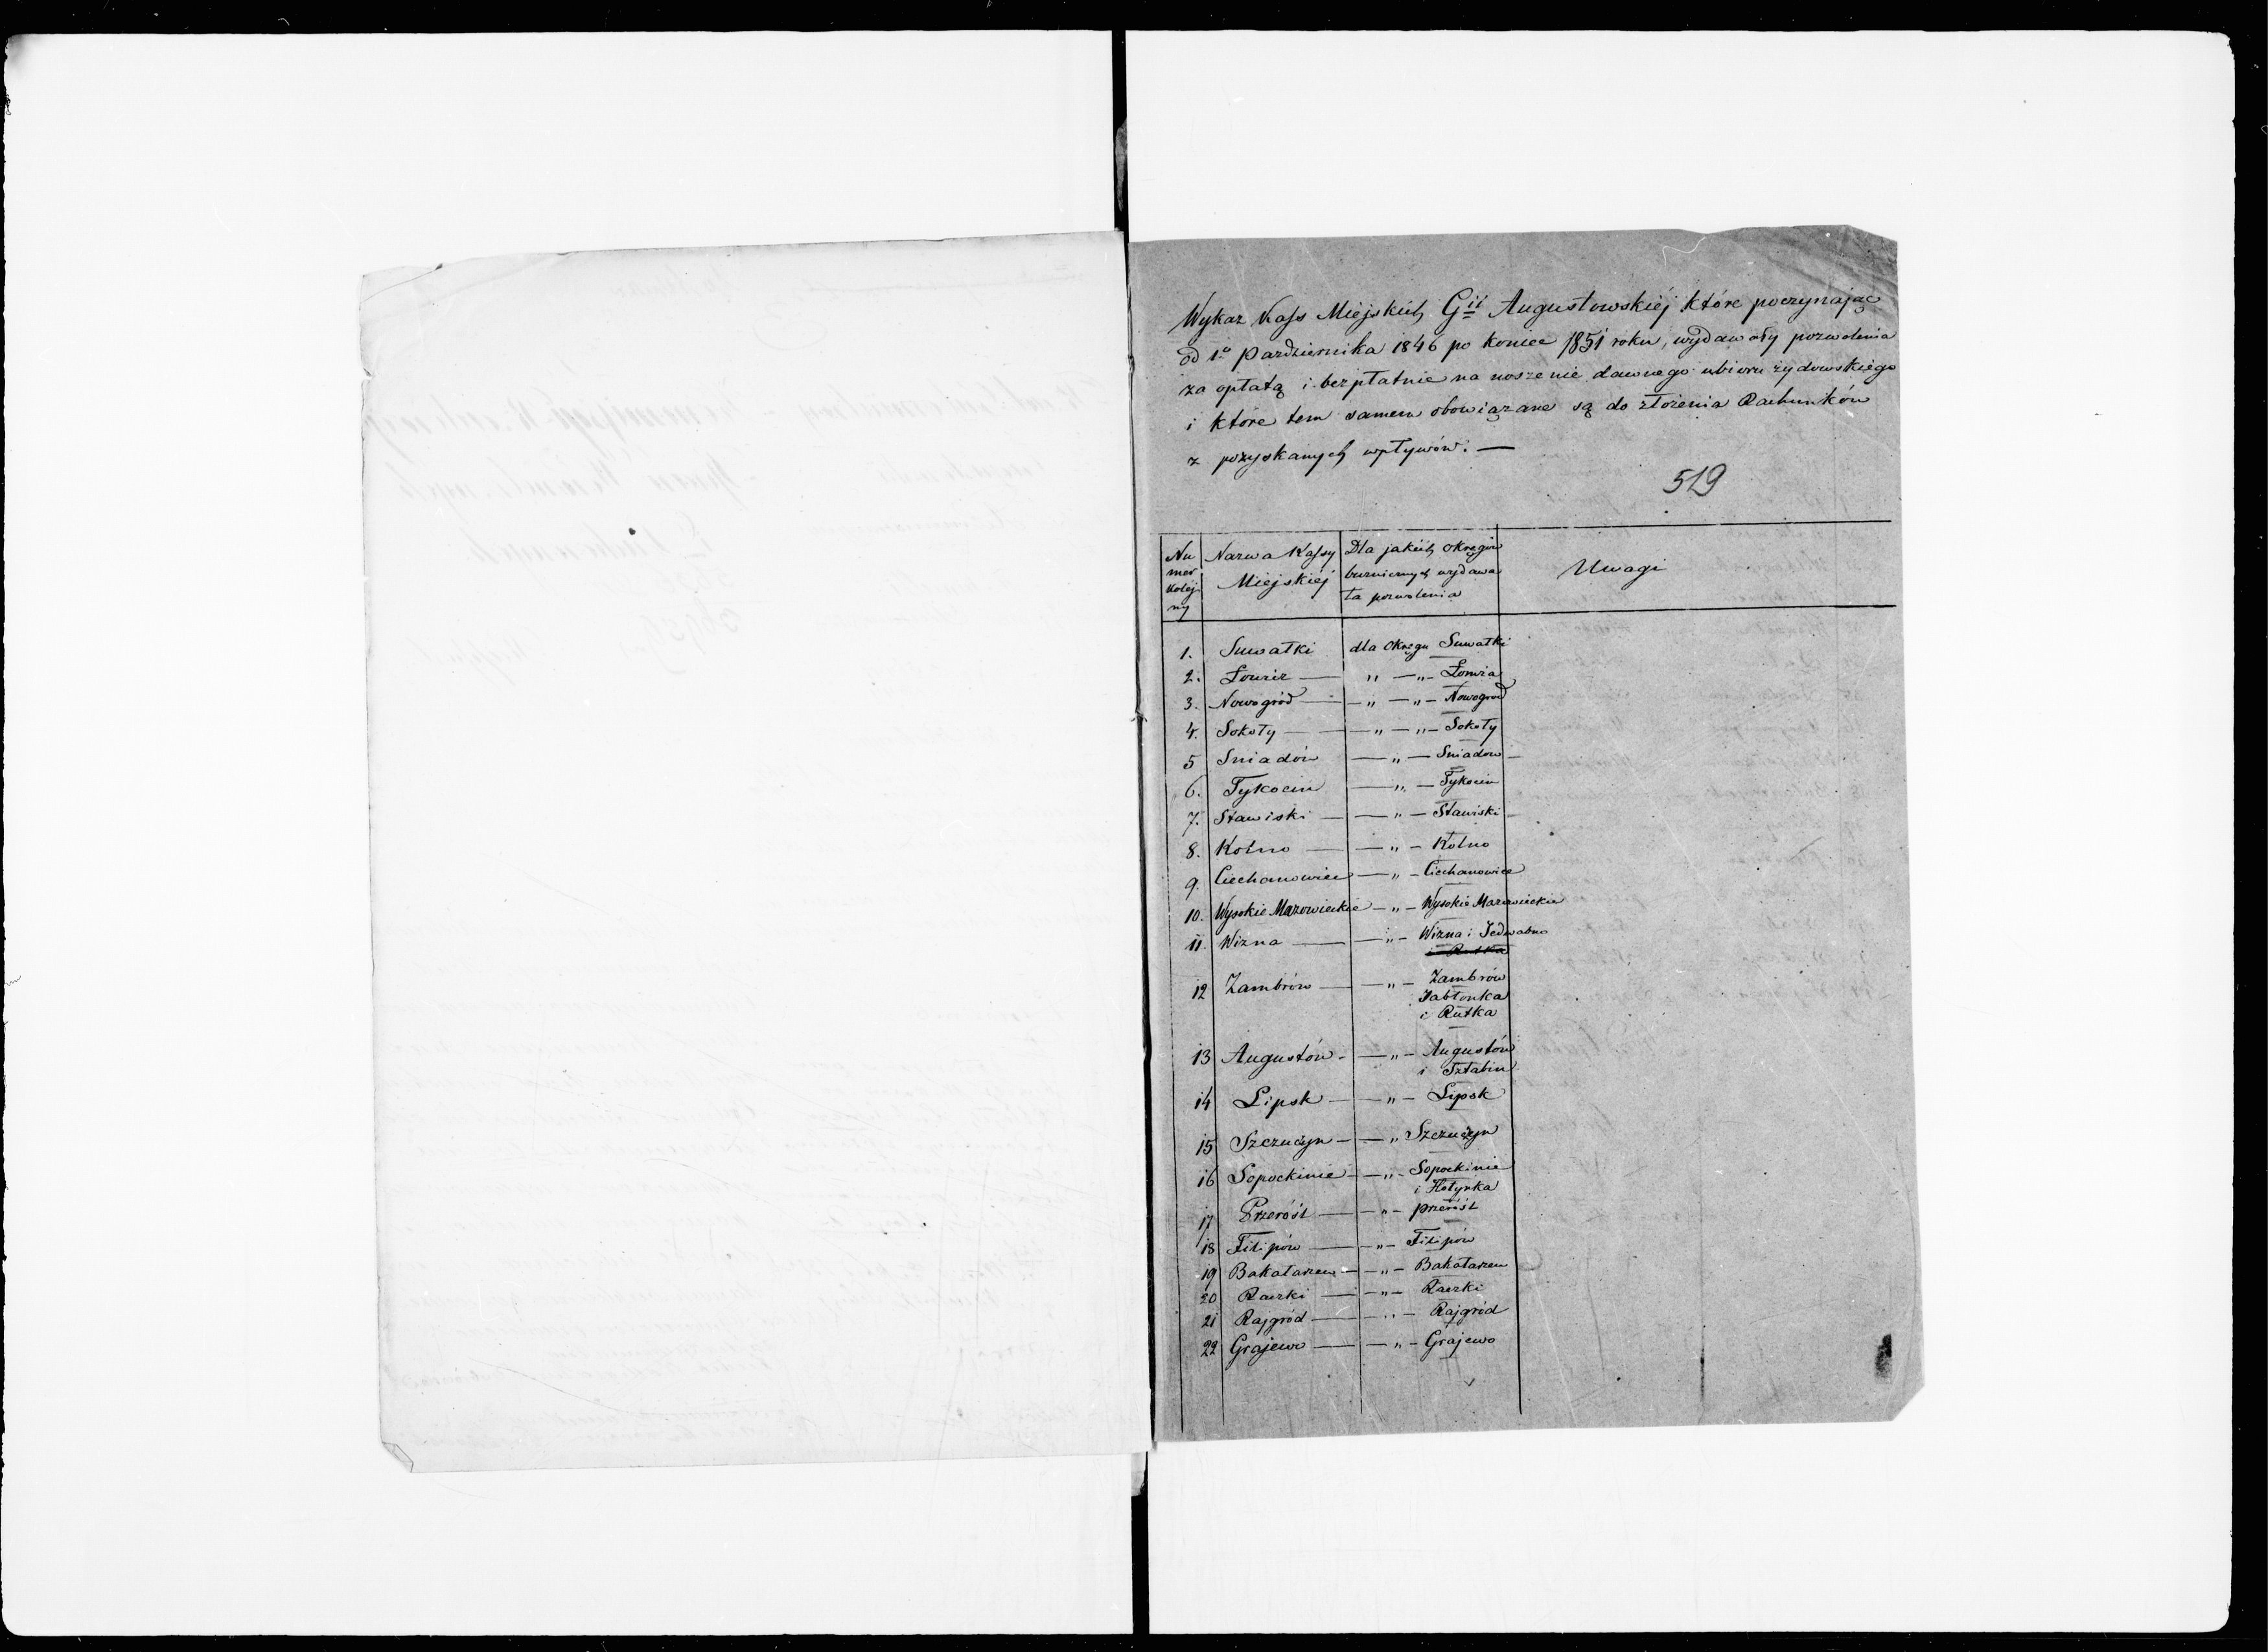 Wykaz Kass Miejskich Gii Augustowskiéj które poczynając
od 1o Pazdziernika 1846 po koniec 1851 roku, wydawały pozwolenia
za opłatą i bezpłatnie na noszenie dawnego ubioru żydowskiego
i które tem samem obowiązane są do złożenia Rachunków
z pozyskanych wpływów. —
519
Nu Nazwa Kassy Dla jakich okręgów Uwagi
mer Miejskiéj bużniczych wydawa
kolej ła pozwolenia
ny
1. Suwałki dla Okręgu Suwałki
2. Łomża — " — " — Łomża
3. Nowogród — " — " — Nowogród
4. Sokoły — " — " — Sokoły
5 Sniadów — " — Sniadow —
6. Tykocin — " — Tykocin
7. Stawiski — " — Stawiski —
8. Kolno — " — Kolno
9. Ciechanowiec — " — Ciechanowiec
10. Wysokie Mazowieckie — " — Wysokie Mazowieckie
11. Wizna — " — Wizna i Jedwabno
i Rutka
12 Zambrów — " — Zambrów
Jabłonka
i Rutka
13 Augustów — " — Augustów
i Sztabin
14 Lipsk — " — Lipsk
15 Szczuczyn — " Szczuczyn
16 Sopockinie — " — Sopockinie
i Hołynka
17 Przerósl — " — Przerósl
18 Filipów — " — Filipów
19 Bakałarzew — " — Bakałarzew
20 Raczki — " — Raczki
21 Rajgród — " — Rajgród
22 Grajewo — " — Grajewo